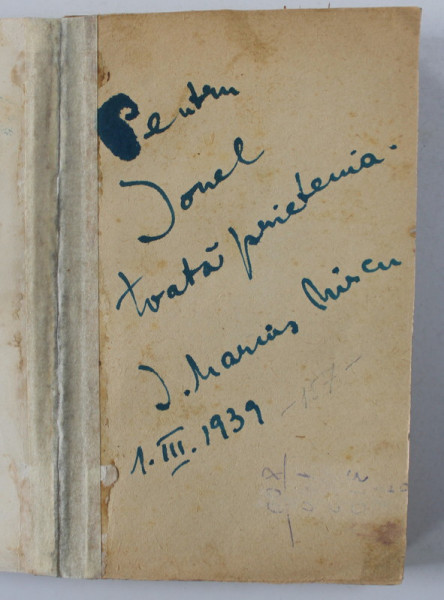 Pentru
Ionel
toată prietenia.
I. Marius Mircu
1. III. 1939